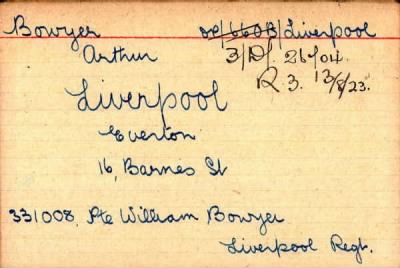 Bowyer 66013/Liverpool
Arthur 3/D/. 26/04.
R. 3. 13/8/23.
Liverpool
Everton
16, Barnes St
331008, Pte William Bowyer
Liverpool Regt.